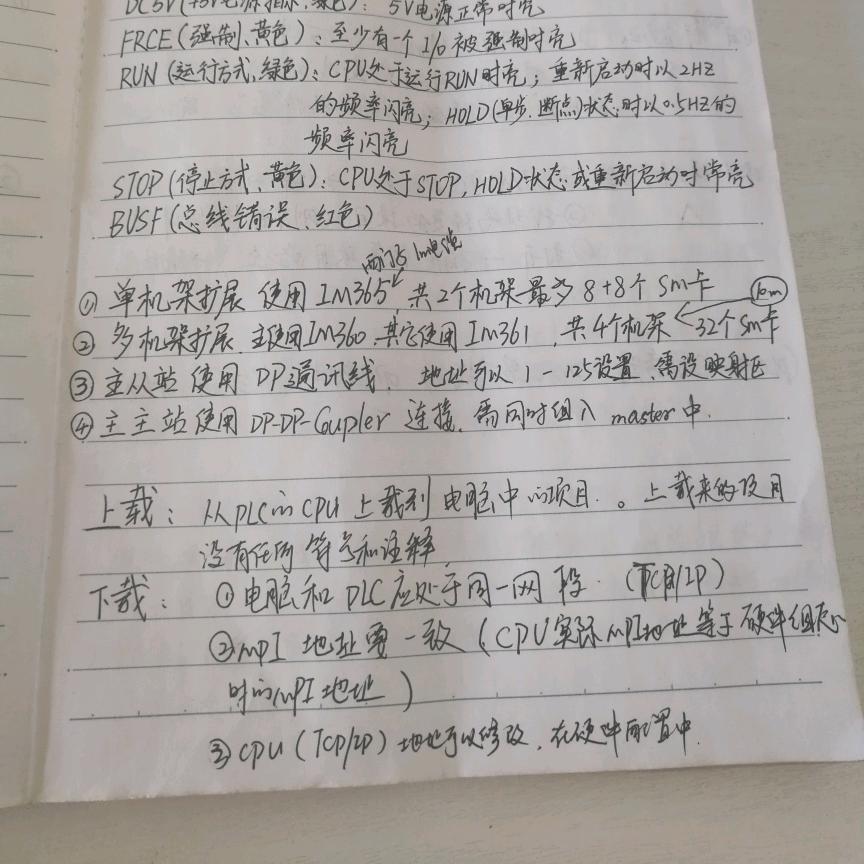 DC5V(+5V电源指示、绿色):5V电源正常时亮
FRCE(强制、黄色):至少有一个I/O被强制时亮
RUN(运行方式、绿色):CPU处于运行RUN时亮;重新启动时以2HZ
的频率闪亮;HOLD(单步、断点)状态时以0.5HZ的
频率闪亮
STOP(停止方式、黄色):CPU处于STOP,HOLD状态或重新启动时常亮
BUSF(总线错误、红色)
1m电缆
① 单机架扩展 使用IM365,共2个机架最多8+8个Sm卡
10m
② 多机架扩展.主使用Im360.其它使用Im361,共4个机架 32个Sm卡
③ 主从站 使用DP通讯线, 地址可以1-125设置.需设映射区
④ 主主站使用DP-DP-Coupler 连接.需同时组入master中.
上载:从PLC的CPU上载到电脑中的项目.。上载来的项目
没有任何符号和注释.
下载:①电脑和PLC应处于同一网段.(TCP/IP)
②mPI地址要一致(CPU实际MPI地址等于硬件组态
时的MPI地址)
③CPU(TCP/IP)地址可以修改.在硬件配置中.